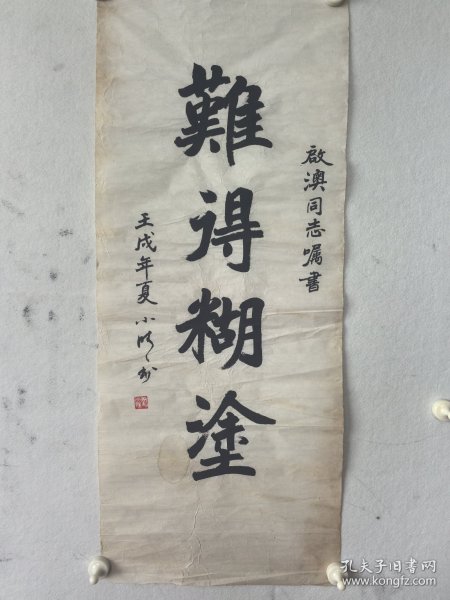 啟澳同志嘱書
難得糊塗
壬戌年夏小
孔夫子旧书网
www.kongfz.com